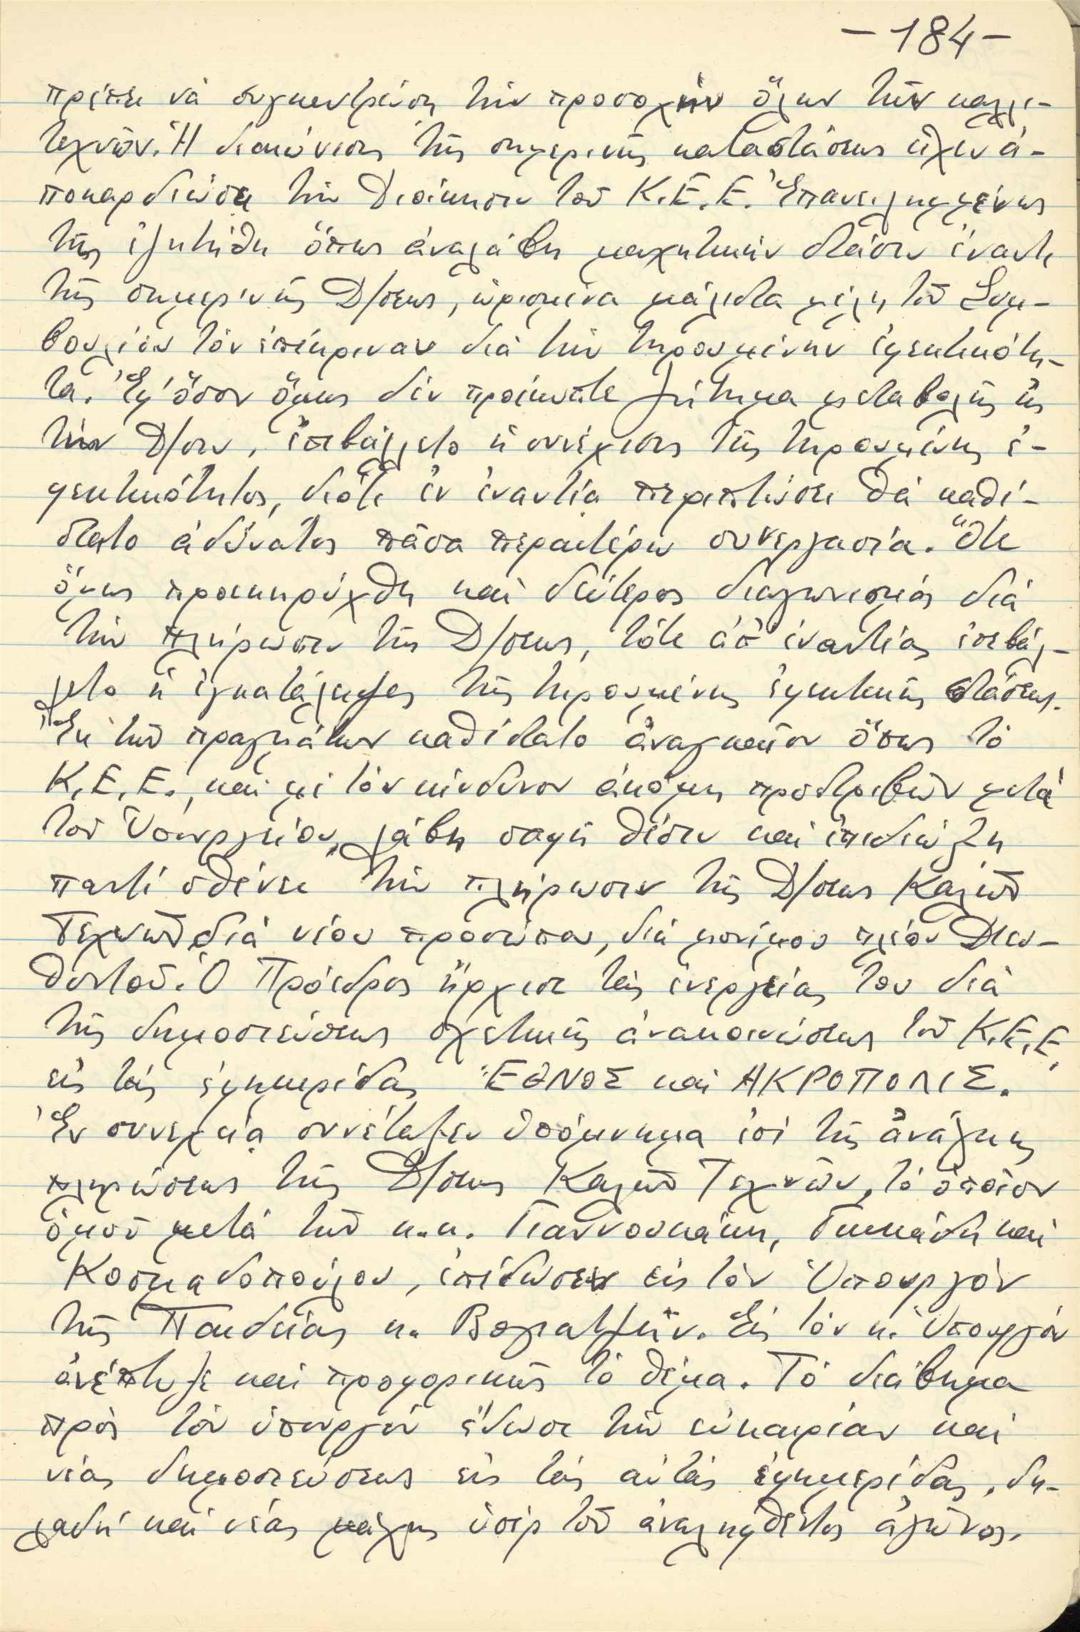 -184-
πρέπει νὰ συγκεντρώση τὴν προσοχὴν ὅλων τῶν καλλι-
τεχνῶν. Ἡ διαιώνισις τῆς σημερινῆς καταστάσεως εἶχεν ἀ-
ποκαρδιώσει τὴν Διοίκησιν τοῦ Κ.Ε.Ε. Ἐπανειλημμένως
τῆς ἐζητήθη ὅπως ἀναλάβη μαχητικὴν στάσιν ἔναντι
τῆς σημερινῆς Δ/σεως, ὡρισμένα μάλιστα μέλη τοῦ Συμ-
βουλίου τὸν ἐπέκριναν διὰ τὴν τηρουμένην ἐφεκτικότη-
τα. Ἐφ' ὅσον ὅμως δὲν προέκυπτε ζήτημα μεταβολῆς εἰς
τὴν Δ/σιν, ἐπεβάλλετο ἡ συνέχισις τῆς τηρουμένης ἐ-
φεκτικότητος, διότι ἐν ἐναντία περιπτώσει θὰ καθί-
στατο ἀδύνατος πᾶσα περαιτέρω συνεργασία. Ὅτε
ὅμως προεκηρύχθη καὶ δεύτερος διαγωνισμὸς διὰ
τὴν πλήρωσιν τῆς Δ/σεως, τότε ἀπ' ἐναντίας ἐπεβάλ-
λετο ἡ ἐγκατάλειψις τῆς τηρουμένης ἐφεκτικῆς στάσεως.
Ἐκ τῶν πραγμάτων καθίστατο ἀναγκαῖον ὅπως τὸ
Κ.Ε.Ε., καὶ μὲ τὸν κίνδυνον ἀκόμη προστριβῶν μετὰ
τοῦ Ὑπουργείου, λάβη σαφῆ θέσιν καὶ ἐπιδιώξη
παντὶ σθένει τὴν πλήρωσιν τῆς Δ/σεως Καλῶν
Τεχνῶν διὰ νέου προσώπου, διὰ μονίμου πλέον Διευ-
θυντοῦ. Ὁ Πρόεδρος ἤρχισε τὰς ἐνεργείας του διὰ
τῆς δημοσιεύσεως σχετικῆς ἀνακοινώσεως τοῦ Κ.Ε.Ε.
εἰς τὰς ἐφημερίδας ΈΘΝΟΣ καὶ ΑΚΡΟΠΟΛΙΣ.
Ἐν συνεχεία συνέταξεν ὑπόμνημα ἐπὶ τῆς ἀνάγκης
πληρώσεως τῆς Δ/σεως Καλῶν Τεχνῶν, τὸ ὁποῖον
ὁμοῦ μετὰ τῶν κ.κ. Γιαννουκάκη, καὶ
Κοσμαδοπούλου, ἐπέδωσεν εἰς τὸν Ὑπουργὸν
τῆς Παιδείας κ. Βογιατζῆν. Εἰς τὸν κ. Ὑπουργὸν
ἀνέπτυξε καὶ προφορικῶς τὸ θέμα. Τὸ διάβημα
πρὸς τὸν ὑπουργὸν ἔδωσε τὴν εὐκαιρίαν καὶ
νέας δημοσιεύσεως εἰς τὰς αὐτὰς ἐφημερίδας, δη-
λαδὴ καὶ νέας μάχης ὑπὲρ τοῦ ἀναληφθέντος ἀγῶνος.